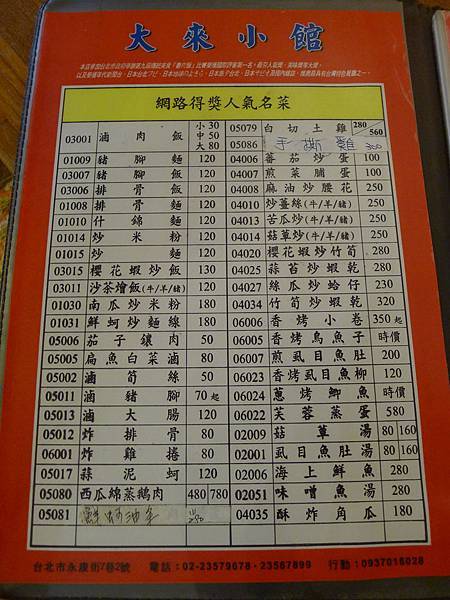 大來小館
網路得獎人氣名菜
03001 滷肉飯 小30 中50 大80
01009 豬腳麵 120
03007 豬腳飯 120
03006 排骨飯 120
01008 排骨麵 120
01010 什錦麵 120
01014 炒米粉 120
01015 炒麵 120
03015 櫻花蝦炒飯 130
03011 沙茶燴飯(牛/羊/豬) 120
01030 南瓜炒米粉 180
01031 鮮蚵炒麵線 180
05006 茄子鑲肉 50
05005 扁魚白菜滷 80
05002 滷筍絲 50
05011 滷豬腳 70起
05013 滷大腸 120
05012 炸排骨 80
06001 炸雞捲 80
05017 蒜泥蚵 120
05080 西瓜綿蒸鵝肉 480 780
05081
05079 白切土雞 280/560
05086 手撕雞 300
04006 蕃茄炒蛋 100
04007 煎菜脯蛋 100
04008 麻油炒腰花 250
04010 炒薑絲(牛/羊/豬) 250
04013 苦瓜炒(牛/羊/豬) 250
04014 菇蕈炒(牛/羊/豬) 250
04020 櫻花蝦炒竹筍 280
04025 蒜苔炒蝦乾 280
04027 絲瓜炒蛤仔 230
04034 竹筍炒蝦乾 320
06006 香烤小卷 350起
06005 香烤烏魚子 時價
06007 煎虱目魚肚 200
06023 香烤虱目魚柳 120
06024 蔥烤鯽魚 時價
06022 芙蓉蒸蛋 580
02009 菇蕈湯 80 160
02001 虱目魚肚湯 80 160
02006 海上鮮魚 280
02051 味噌魚湯 280
04035 酥炸角瓜 180
台北市永康街7巷2號 電話：02-23579678・23567899 行動：0937016028